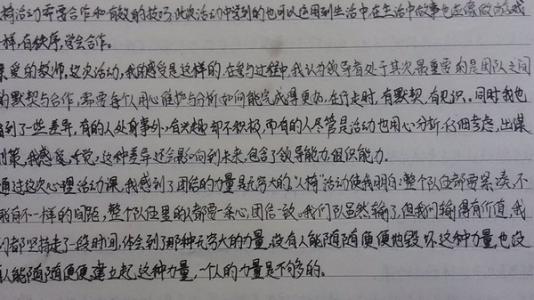 椅活动需要合作和有效的技巧,此次活动中学到的也可以运用到生活中,在生活中做事也应像做游戏
一样,有秩序,学会合作。
亲爱的教师,这次活动,我的感受是这样的,在参与过程中,我认为领导者处于其次,需重要的是团队之间
的默契与合作,需要每个人用心维护与分析,如何能完成得更好,在行走时,有默契,有见识。同时我也
看到了一些差异,有的人处身事外,有兴趣却不积极,而有的人尽管是活动也用心分析,仔细考虑,出谋
划策,我感受,这种差异还会影响到未来,包含了领导能力,组织能力。
通过这次心理活动课,我感到了团结的力量是无穷大的,"人椅"活动使我明白:整个队伍都要紧凑,不
能有不一样的间距,整个队伍里的人都要一条心,团结一致。我们队虽然输了,但我们输得有价值,我
们都坚持走了一段时间,体会到了那种无穷大的力量,没有人能随随便便地毁坏这种力量,也没
人能随随便便建立起这种力量,一个人的力量是不够的。